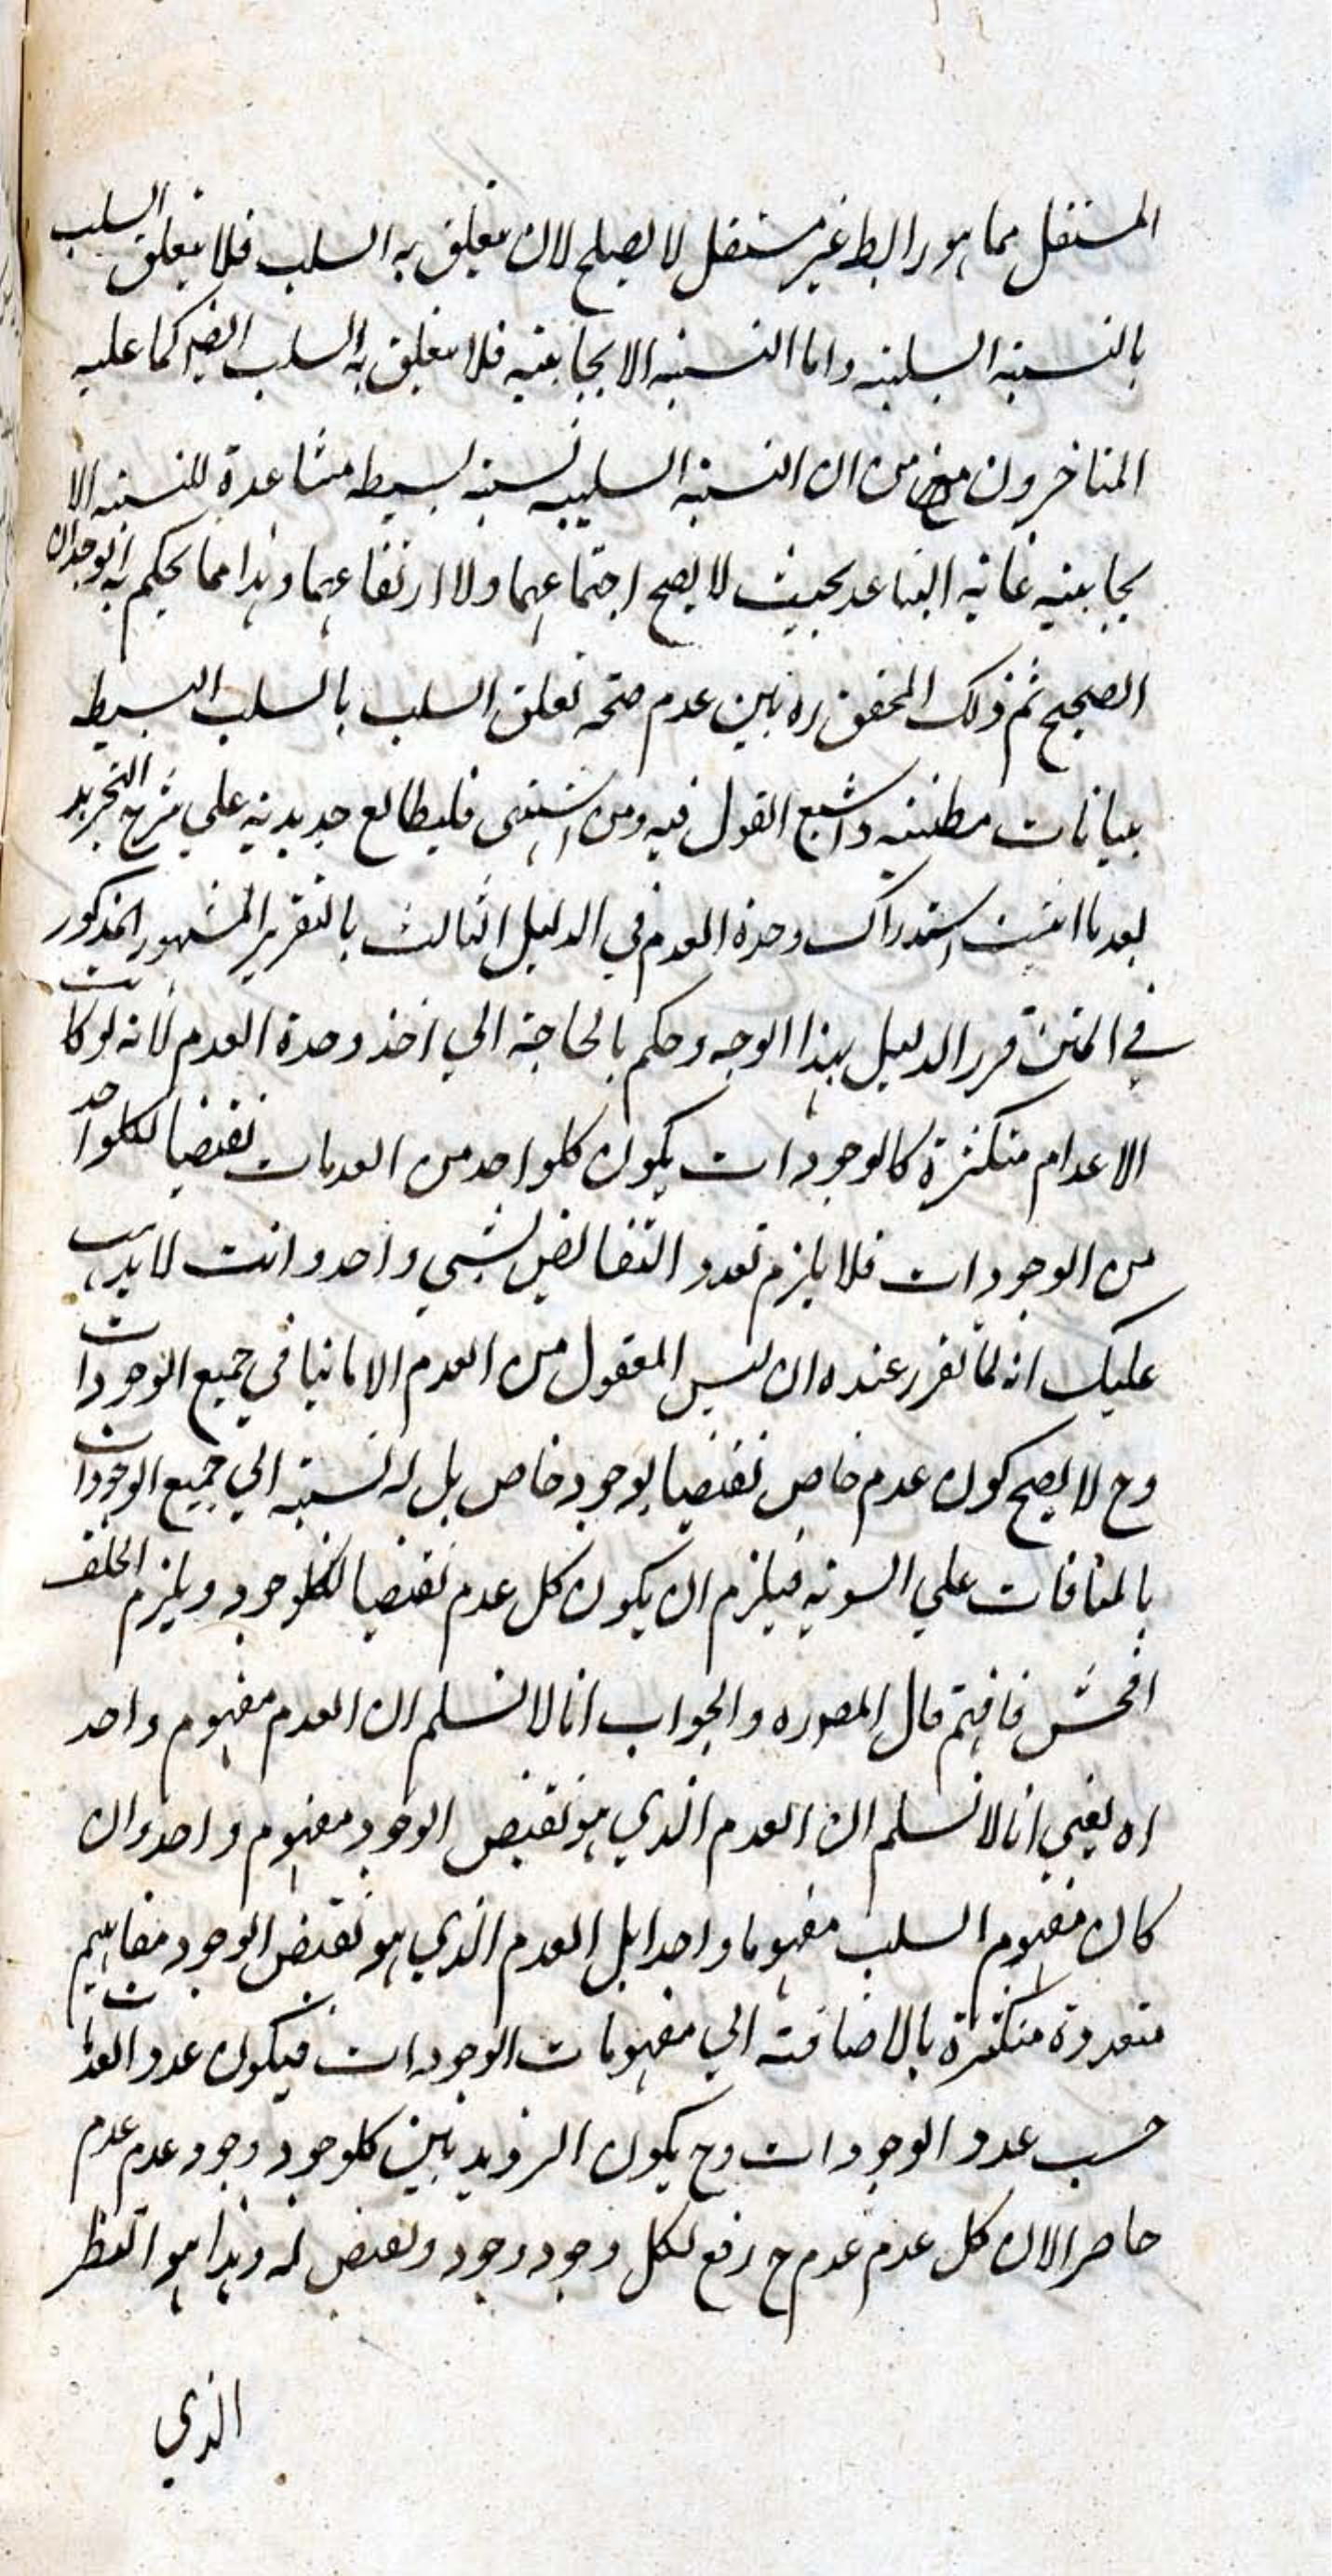 المستقل مما هو رابط غير مستقل لا يصلح لان يتعلق به السلب فلا يتعلق السلب
بالنسبة السلبية واما النسبة الايجابية فلا يتعلق به السلب ايضا كما عليه
المتاخرون من ان النسبة السلبية نسبة بسيطه متباعدة للنسبه الا
يجابيه غاية التباعد بحيث لا يصح اجتماعهما ولا ارتفاعهما وهذا مما يحكم به الوجدان
الصحيح ثم ذلك المحقق ره بين عدم صحة تعلق السلب بالسلب البسيط
ببيانات مطنبه واشبع القول فيه ومن اشتهى فليطالع جديدية علي شرح التجريد
بعد ما اثبت استدراك وحدة العدم في الدليل الثالث بالتقرير المشهور المذكور
في المتن قرر الدليل بهذا الوجه وحكم بالحاجة الي اخذ وحدة العدم لانه لو كانت
الاعدام متكثرة كالوجودات يكون كلواحد من العدمات نقيضا لكلواحد
من الوجودات فلا يلزم تعدد النقائض لشيي واحد وانت لا يذهب
عليك انه لما تقرر عنده ان ليس المعقول من العدم الا ما ينافي جميع الوجودات
وح لا يصح كون عدم خاص نقيضا لوجود خاص بل له نسبة الي جميع الوجودات
بالمنافات علي السويه فيلزم ان يكون كل عدم نقيضا لكلوجود ويلزم الخلف
افحش فافهم قال المص ره والجواب انا لا نسلم ان العدم مفهوم واحد
اه يعني انا لا نسلم ان العدم الذي هو نقيض الوجود مفهوم واحد وان
كان مفهوم السلب مفهوما واحدا بل العدم الذي هو نقيض الوجود مفاهيم
متعددة متكثرة بالاضافة الي مفهومات الوجودات فيكون عدد العدمات
حسب عدد الوجودات وح يكون الترديد بين كلوجود وجود عدم عدم
حاصرا لان كل عدم عدم ح رفع لكل وجود وجود ونقيض له وهذا هو النظر
الذي